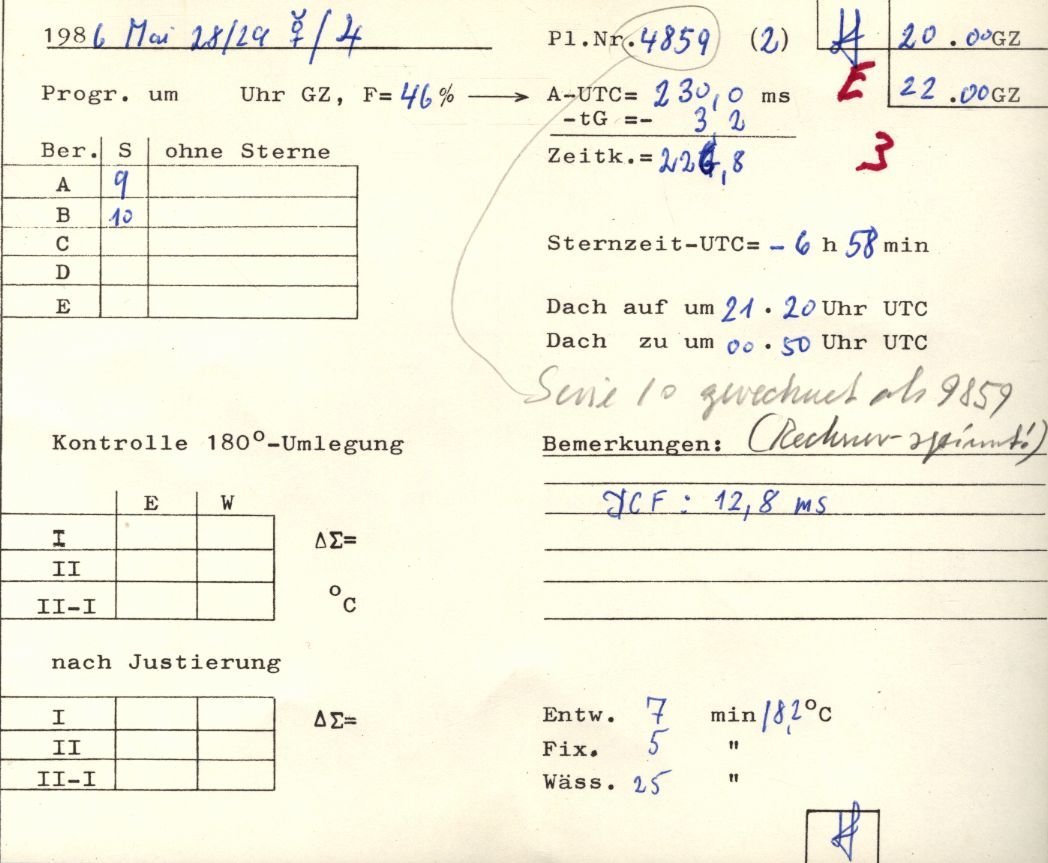 1986 Mai 28/29 ☿/♃
Pl.Nr. 4859 (2)
20.00GZ
Progr. um Uhr GZ, F=46% → A-UTC= 230,0 ms
E
22.00GZ
-tG =- 3,2
Zeitk.= 226,8
3
Ber. S ohne Sterne
A 9
B 10
C
D
E
Sternzeit-UTC= -6 h 58 min
Dach auf um 21.20 Uhr UTC
Dach zu um 00.50 Uhr UTC
Serie 10 gerechnet als 9859
Kontrolle 180°-Umlegung
Bemerkungen: (Rechner spinnt!)
DCF: 12,8 ms
E W
I ΔΣ=
II
II-I °C
nach Justierung
I ΔΣ=
II
II-I
Entw. 7 min 18,2°C
Fix. 5 "
Wäss. 25 "